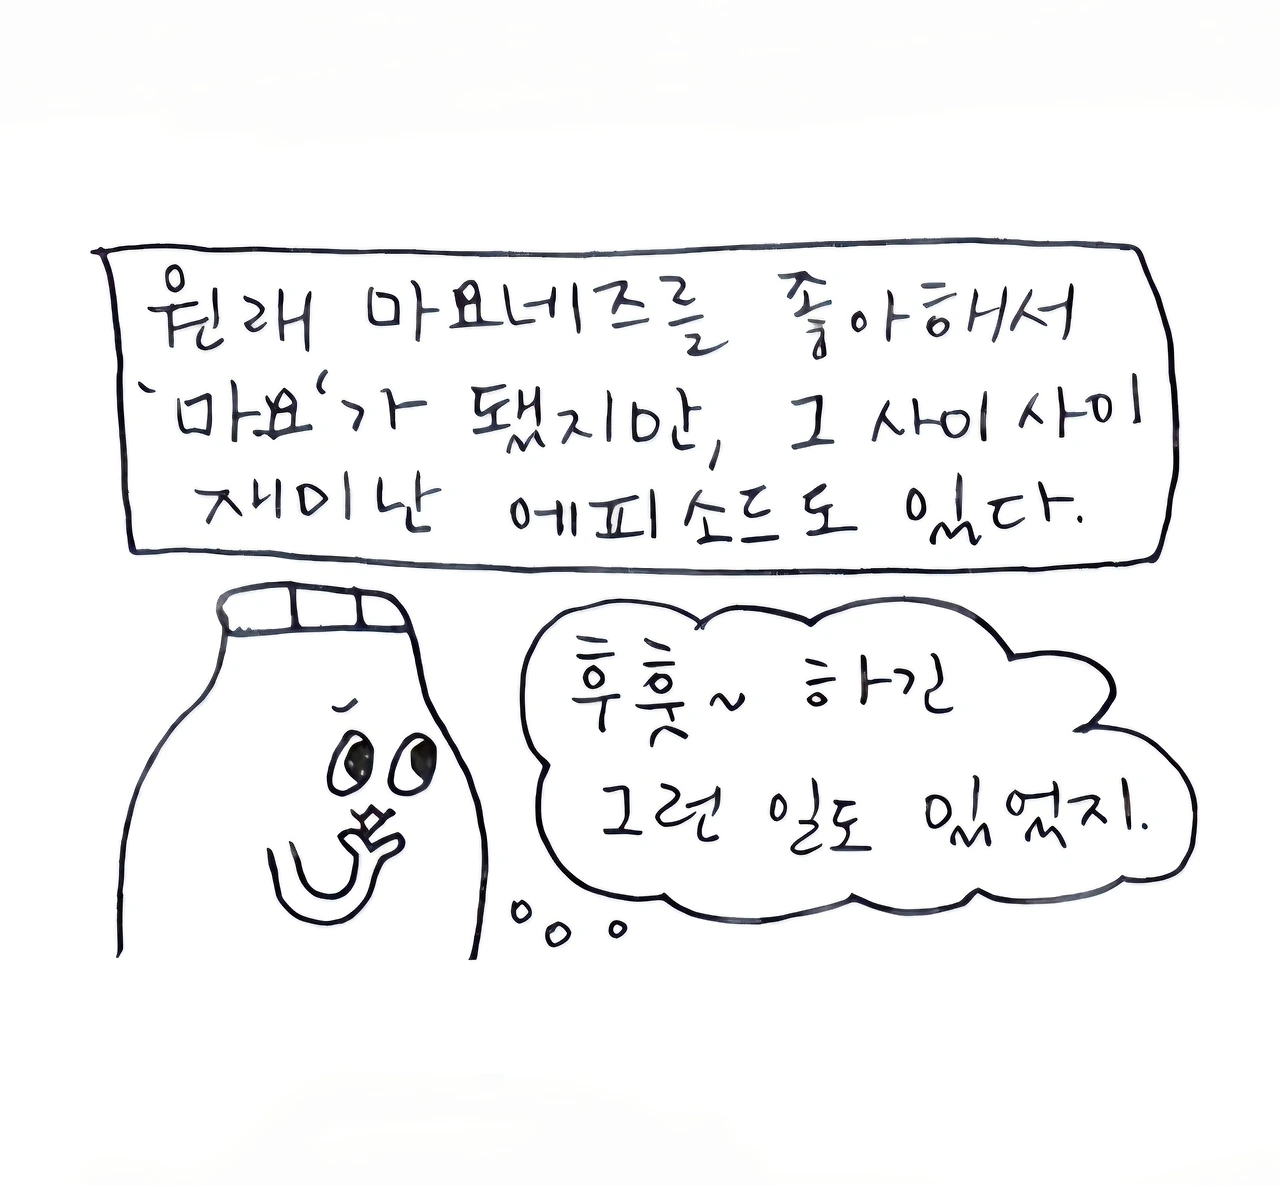 원래 마요네즈를 좋아해서
'마요'가 됐지만, 그 사이사이
재미난 에피소드도 있다.
후훗~ 하긴
그런 일도 있었지.